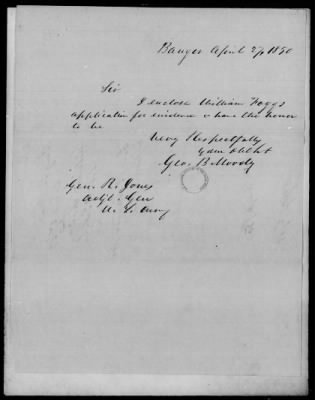 Bangor April 27 1850
Sir
I enclose William Foggs
application for evidence & have the honor
to be
Very Respectfully
Your Obt Svt
Geo. B Moody
Gen. R. Jones
Adjt. Gen
U. S. Army